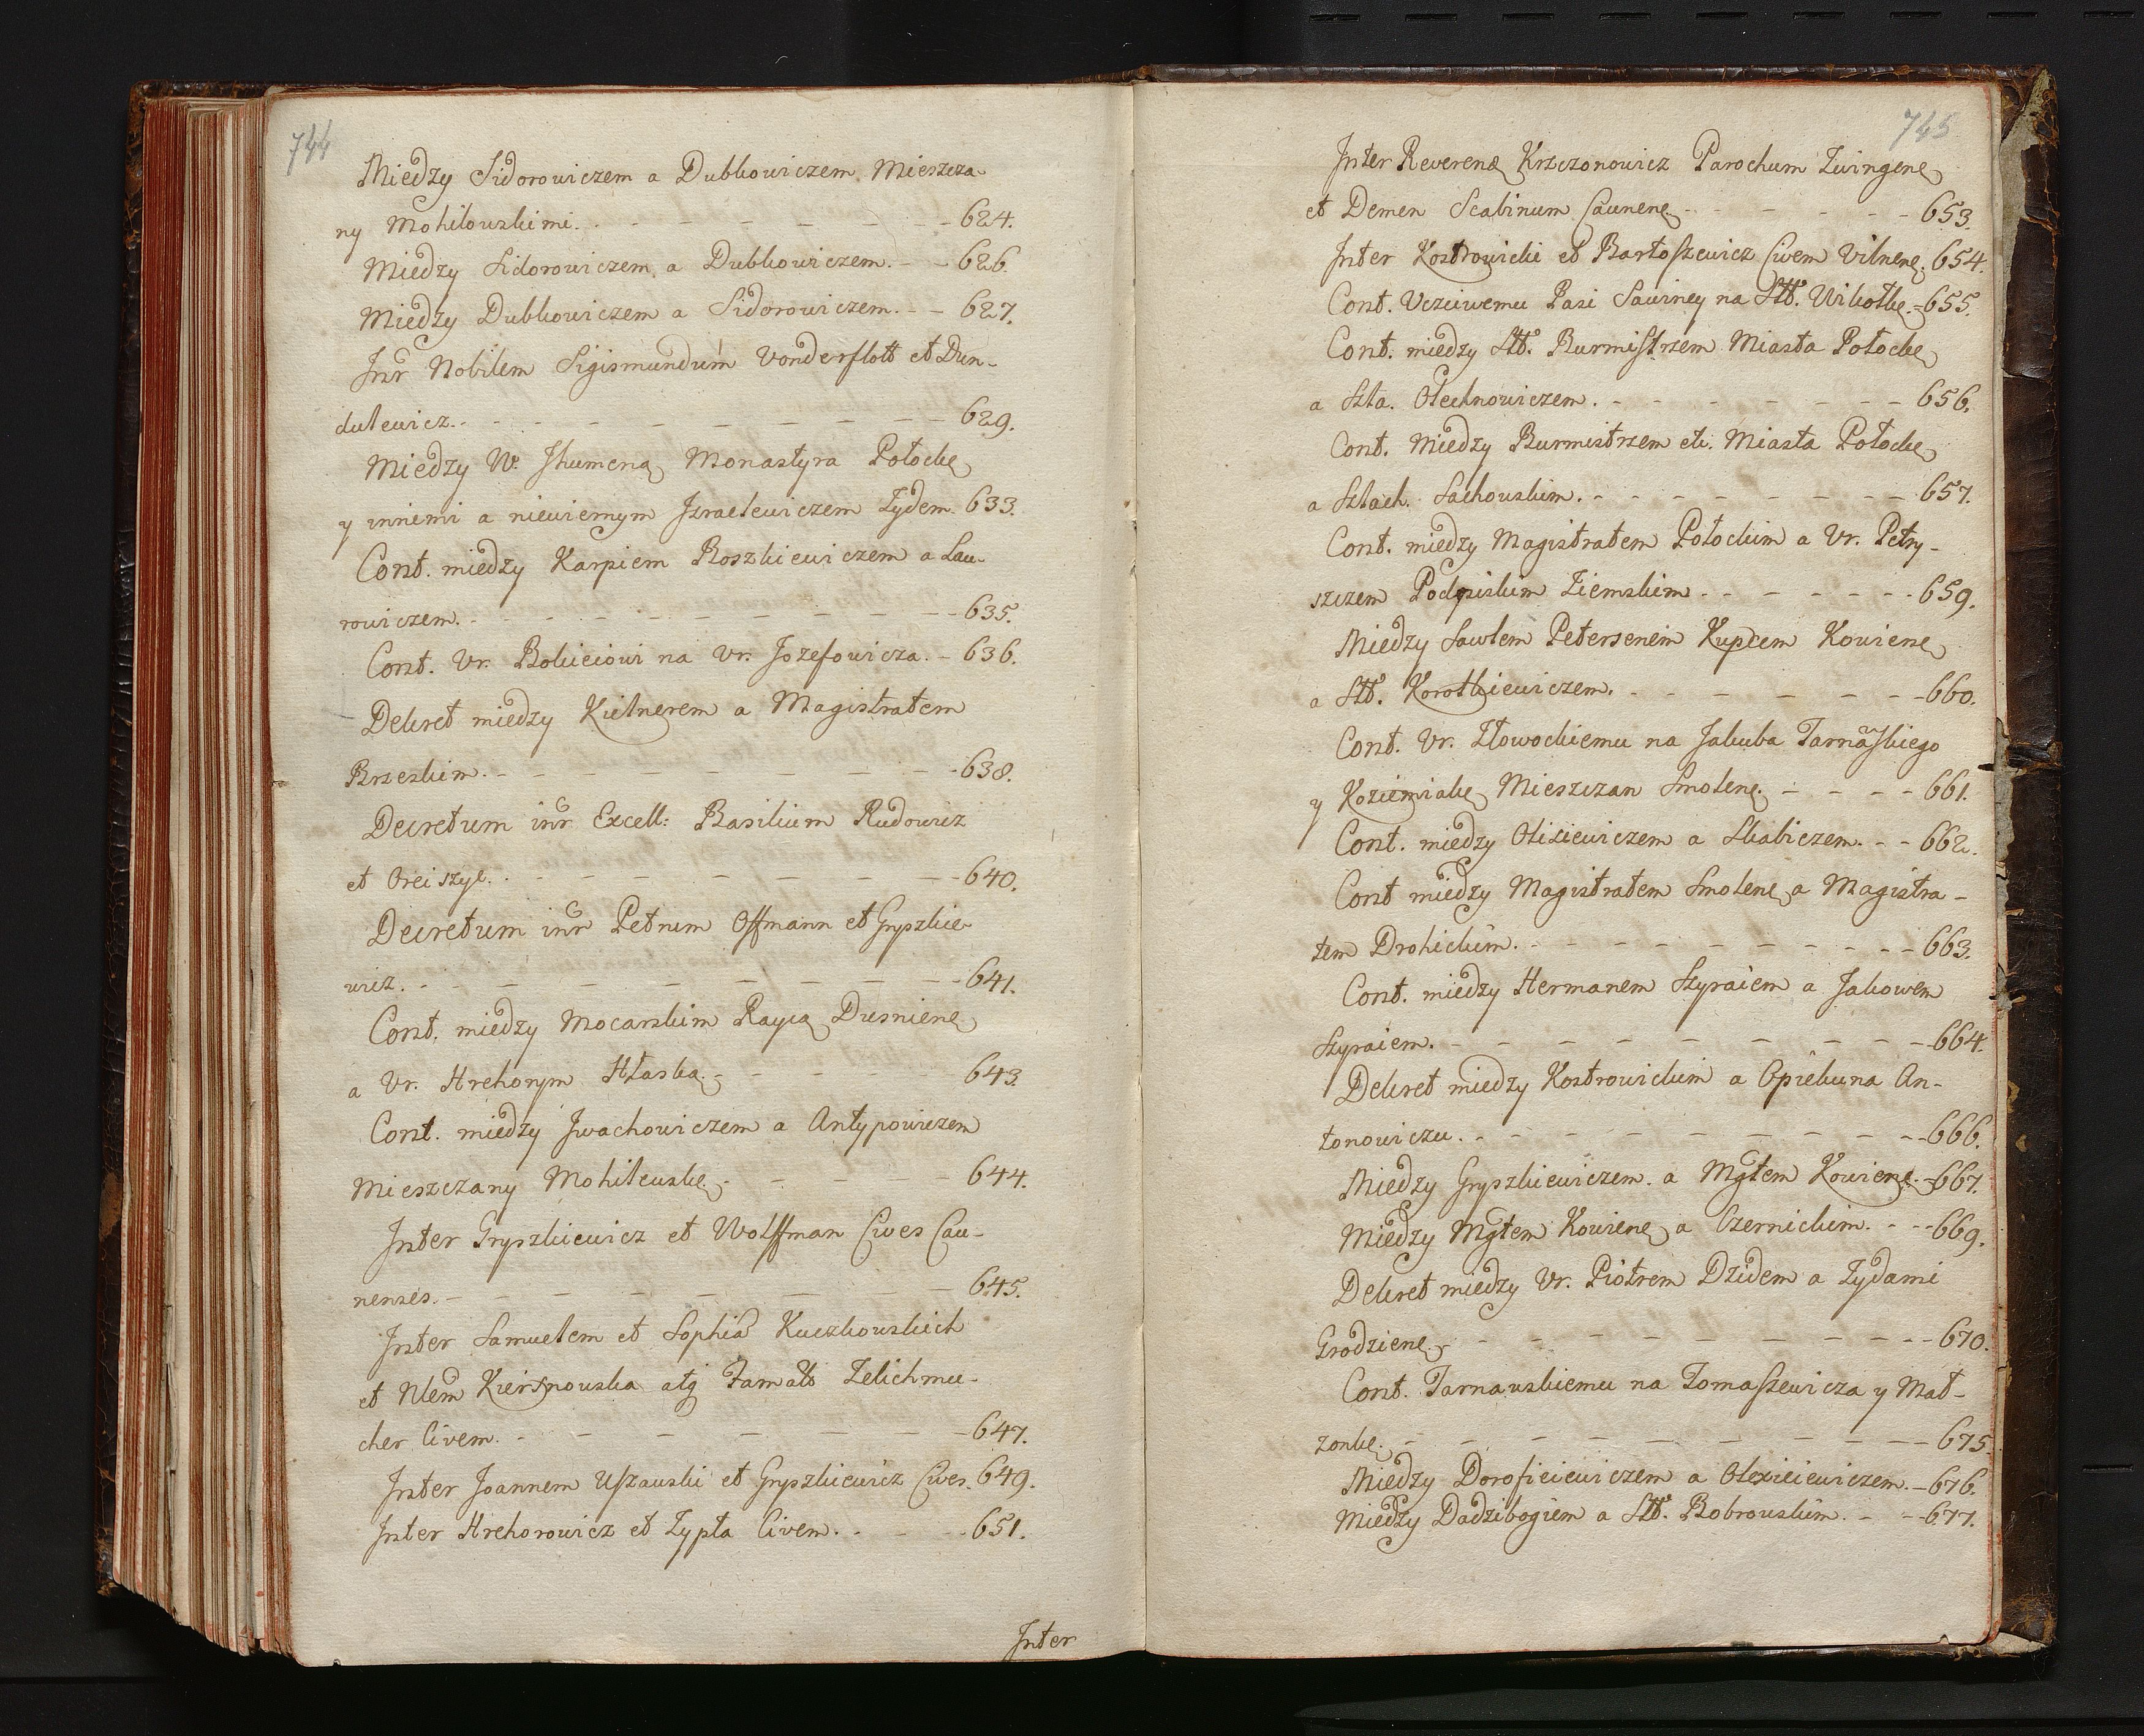 744
Między Sidorowiczem a Dubkowiczem Mieszcza-
ny Mohilowskimi. - - - - - - 624.
Między Sidorowiczem, a Dubkowiczem. - - 626.
Między Dubkowiczem a Sidorowiczem. - - 627.
Intr Nobilem Sigismundum Vonderflott et Dun-
dulewicz. - - - - - - - - 629.
Między W. Ihumeną Monastyra Połocke
y innemi a niewiernym Izraelewiczem Zydem. 633.
Cont. między Karpiem Roszkiewiczem a Law-
rowiczem. - - - - - - - - 635.
Cont. Vr. Bokieiowi na Vr. Jozefowicza. - 636.
Dekret między Kielnerem a Magistratem
Brzeskim. - - - - - - - - 638.
Decretum intr Excell: Basilium Rudowicz
et Oreiszyc. - - - - - - - - 640.
Decretum intr Petrum Offmann et Gryszkie-
wicz. - - - - - - - - 641.
Cont. między Mocarskim Raycą Dzisniene
a Vr. Hrehorym Hłaska. - - - - - 643.
Cont. między Jwachowiczem a Antypowiczem
Mieszczany Mohilewske. - - - - 644.
Inter Gryszkiewicz et Wolffman Cives Cau-
nenses. - - - - - - - - 645.
Inter Samuelem et Sophia Kuczkowskich
et Nlem Kiersnowska atq Famato Zelichmu-
cher Civem. - - - - - - - 647.
Inter Joannem Uszauski et Gryszkiewicz Cives. 649.
Inter Hrehorowicz et Zypta Civem. - - - 651.
Inter
745
Inter Reverend Krzczonowicz Parochum Zwingene
et Demen Scabinum Caunene. - - - - - 653.
Inter Kostrowicki et Bartoszewicz Civem Vilnene. 654.
Cont. Uczciwemu Pasi Sawiney na Stt. Wikotke. - 655.
Cont. między Stt. Burmistrzem Miasta Połocke
a Szla. Olechnowiczem. - - - - - - 656.
Cont. Między Burmistrzem etc. Miasta Połocke
a Szlach. Sachowskim. - - - - - - 657.
Cont. między Magistratem Połockim a Vr. Petry-
szczem Podpiskim Ziemskim. - - - - - 659.
Między Sawlem Petersenem Kupcem Kowiene
a Stt. Korotkiewiczem. - - - - - - 660.
Cont. Vr. Złowockiemu na Jakuba Tarnaskiego
y Koziemiake Mieszczan Smolene. - - - - 661.
Cont. między Olisiewiczem a Skabiczem. - - 662.
Cont między Magistratem Smolene a Magistra-
tem Drohickim. - - - - - - - - 663.
Cont. między Hermanem Szyraiem a Jakowem
Szyraiem. - - - - - - - - 664.
Dekret między Kostrowickim a Opiekuna An-
tonowiczu. - - - - - - - - 666.
Między Gryszkiewiczem. a Mgtem Kowiene. - 667.
Między Mgtem Kowiene a Czernickim. - - 669.
Dekret między Vr. Piotrem Dzidem a Zydami
Grodziene - - - - - - - - 670.
Cont. Tarnawskiemu na Tomaszewicza y Mał-
zonke. - - - - - - - - 675.
Między Doroficiewiczem a Olexieiewiczem. - 676.
Między Dadzibogiem a Stt. Bobrowskim. - - 677.